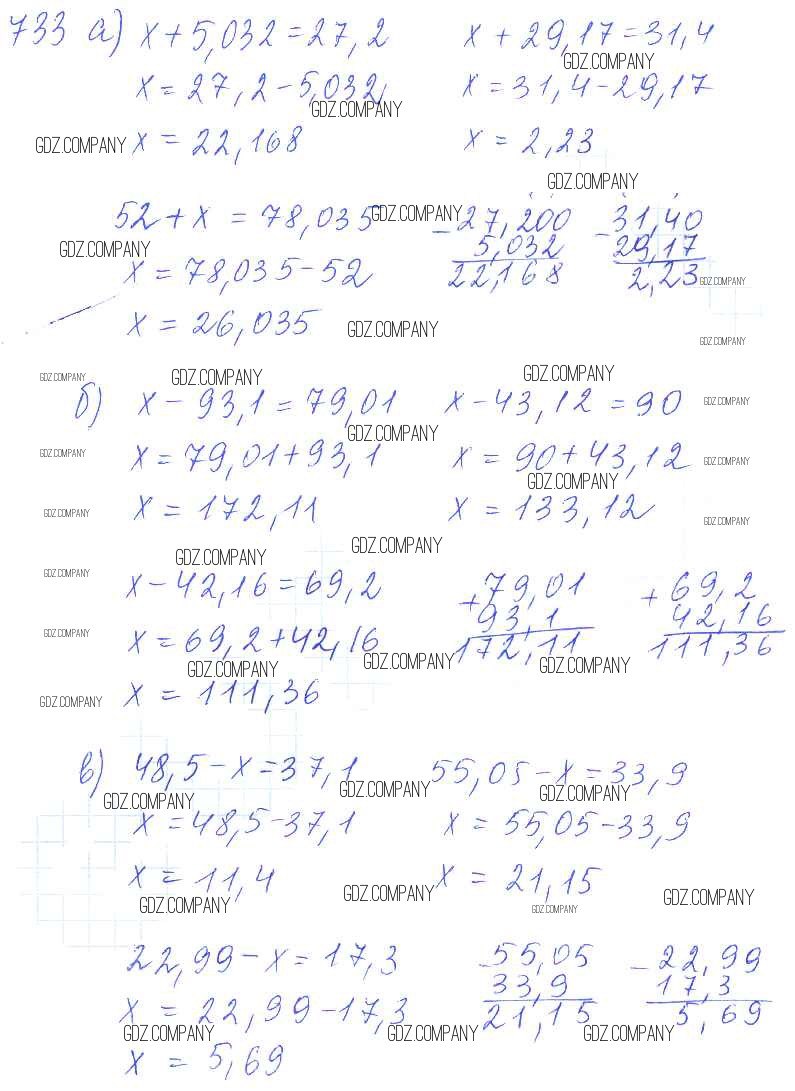 733 а) x + 5,032 = 27,2   x + 29,17 = 31,4
GDZ.COMPANY
x = 27,2 - 5,032   x = 31,4 - 29,17
GDZ.COMPANY
GDZ.COMPANY x = 22,168   x = 2,23
GDZ.COMPANY
52 + x = 78,035 GDZ.COMPANY - 27,200   - 31,40
GDZ.COMPANY 5,032   29,17
x = 78,035 - 52   22,168   2,23 GDZ.COMPANY
x = 26,035 GDZ.COMPANY
GDZ.COMPANY
GDZ.COMPANY GDZ.COMPANY GDZ.COMPANY
б) x - 93,1 = 79,01   x - 43,12 = 90 GDZ.COMPANY
GDZ.COMPANY
GDZ.COMPANY x = 79,01 + 93,1   x = 90 + 43,12 GDZ.COMPANY
GDZ.COMPANY
GDZ.COMPANY x = 172,11   x = 133,12 GDZ.COMPANY
GDZ.COMPANY GDZ.COMPANY
GDZ.COMPANY x - 42,16 = 69,2   + 79,01   + 69,2
93,1   42,16
GDZ.COMPANY x = 69,2 + 42,16   172,11   111,36
GDZ.COMPANY GDZ.COMPANY GDZ.COMPANY
GDZ.COMPANY x = 111,36
в) 48,5 - x = 37,1   55,05 - x = 33,9
GDZ.COMPANY GDZ.COMPANY GDZ.COMPANY
x = 48,5 - 37,1   x = 55,05 - 33,9
x = 11,4   x = 21,15
GDZ.COMPANY GDZ.COMPANY GDZ.COMPANY GDZ.COMPANY
22,99 - x = 17,3   - 55,05   - 22,99
33,9   17,3
x = 22,99 - 17,3   21,15   5,69
GDZ.COMPANY GDZ.COMPANY GDZ.COMPANY
x = 5,69